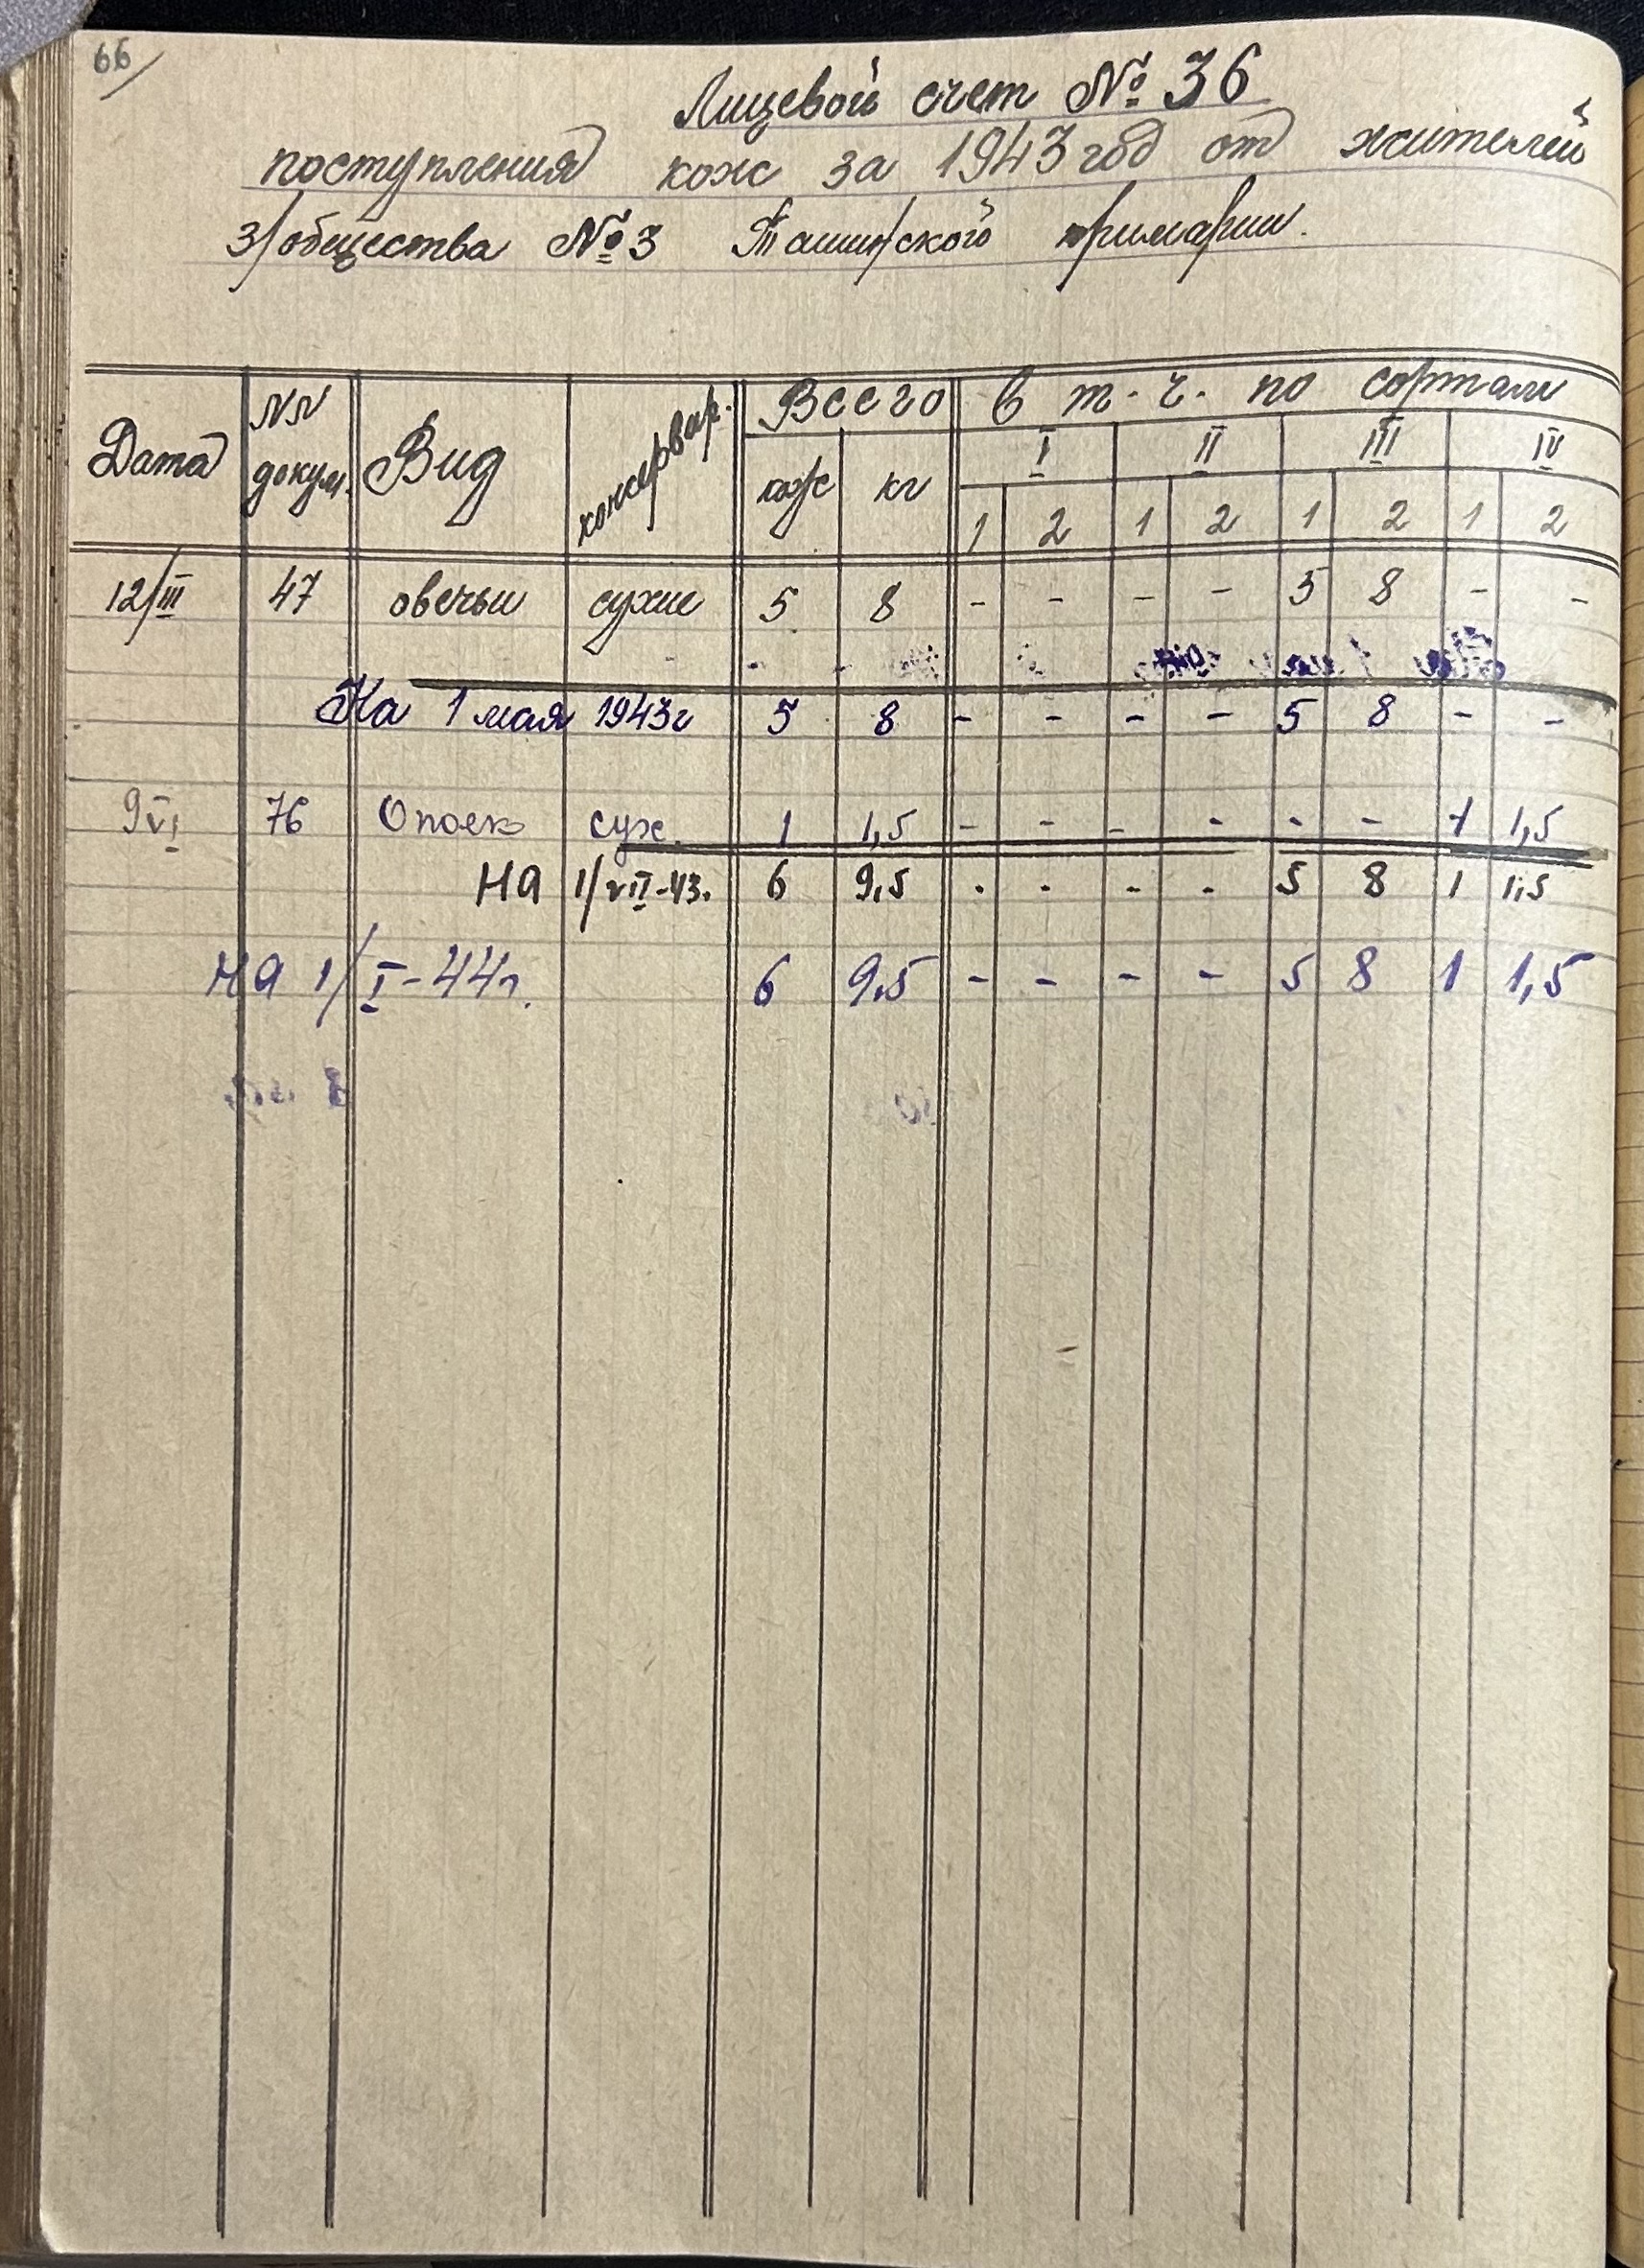 66/
Лицевой счет № 36
поступления кож за 1943 год от жителей
з/общества № 3 примарии.
Дата №№ докум. Вид консервир. Всего в т. ч. по сортам
кож кг I II III IV
1 2 1 2 1 2 1 2
12/III 47 овечьи сухие 5 8 - - - - 5 8 - -
На 1 мая 1943г 5 8 - - - - 5 8 - -
9/VI 76 Опоек сух. 1 1,5 - - - - - - 1 1,5
НА 1/VII-43. 6 9,5 - - - - 5 8 1 1,5
НА 1/I-44г. 6 9,5 - - - - 5 8 1 1,5